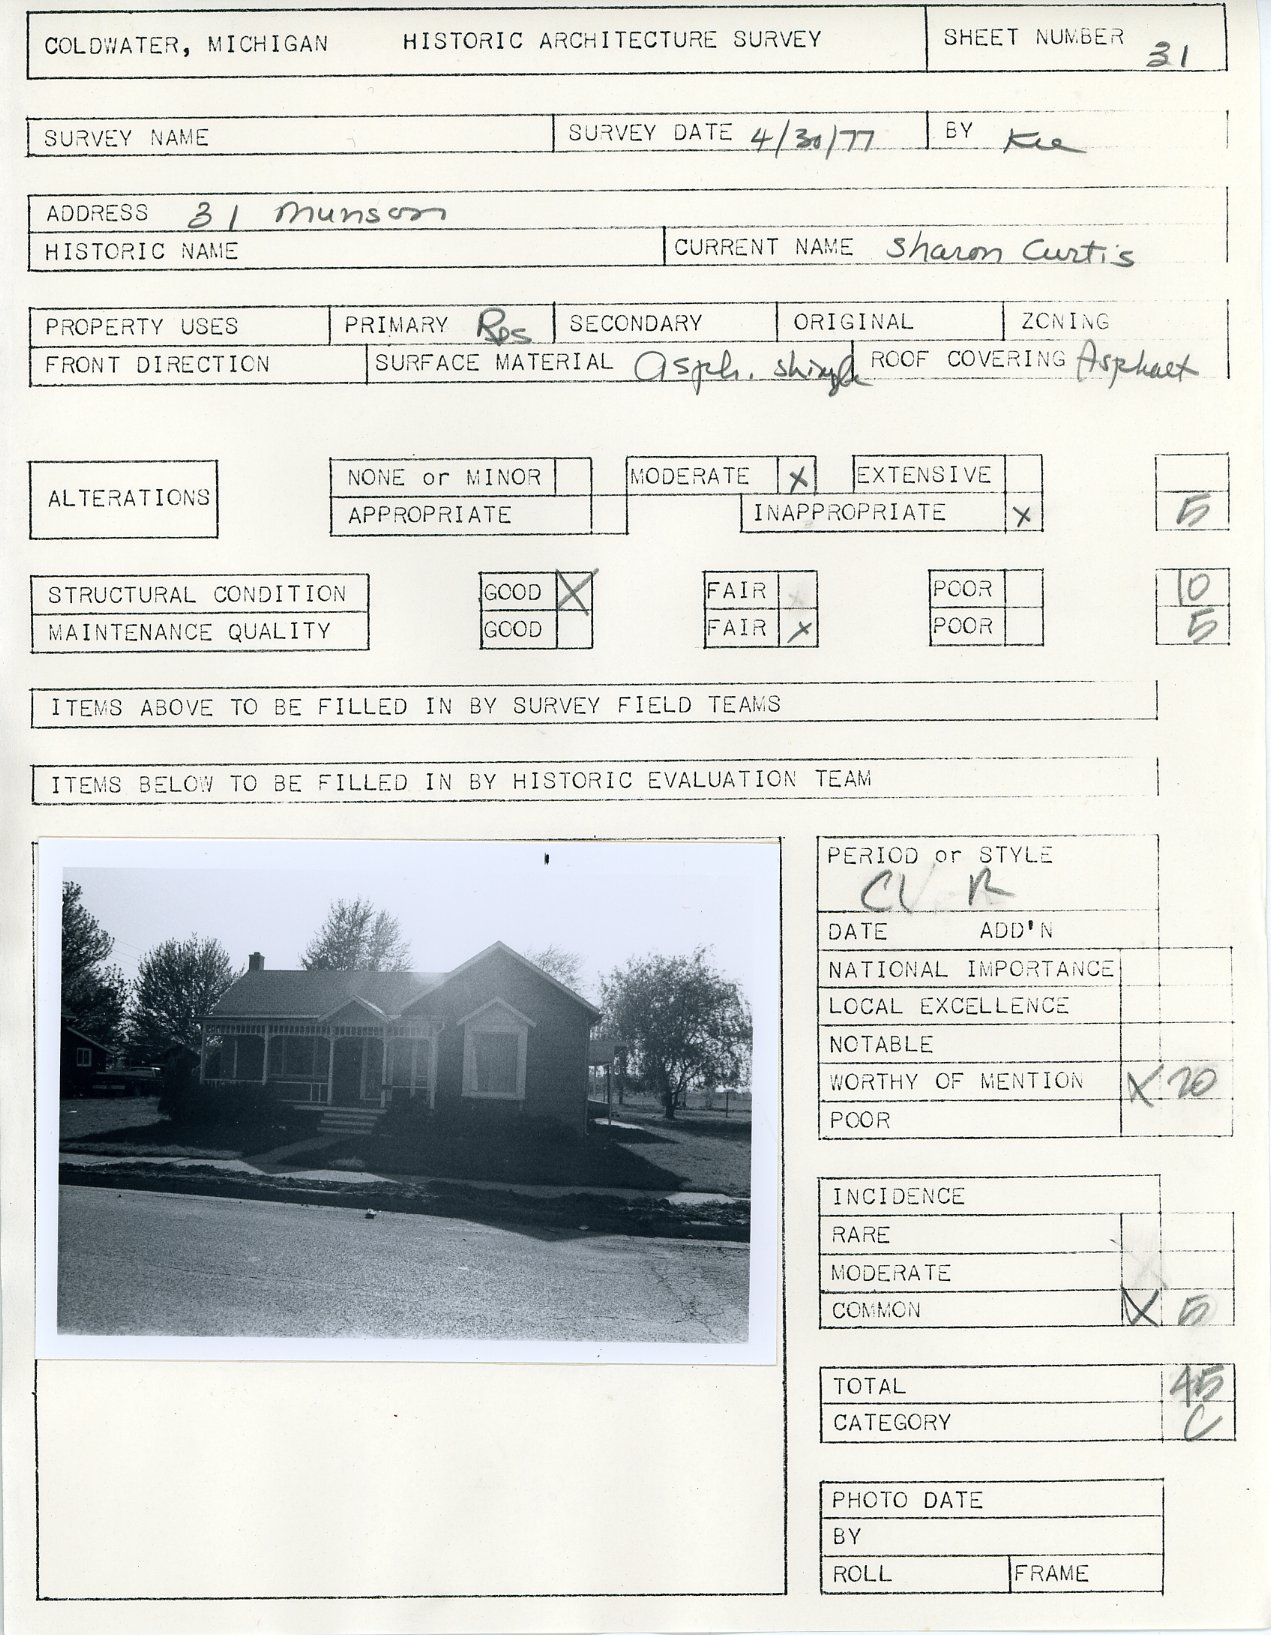 COLDWATER, MICHIGAN HISTORIC ARCHITECTURE SURVEY SHEET NUMBER 31
SURVEY NAME SURVEY DATE 4/30/77 BY
ADDRESS 31 Munson
HISTORIC NAME CURRENT NAME Sharon Curtis
PROPERTY USES PRIMARY Res SECONDARY ORIGINAL ZONING
FRONT DIRECTION SURFACE MATERIAL Asph. shingle ROOF COVERING Asphalt
ALTERATIONS
NONE or MINOR MODERATE X EXTENSIVE
APPROPRIATE INAPPROPRIATE X 5
STRUCTURAL CONDITION GOOD X FAIR POOR 10
MAINTENANCE QUALITY GOOD FAIR X POOR 5
ITEMS ABOVE TO BE FILLED IN BY SURVEY FIELD TEAMS
ITEMS BELOW TO BE FILLED IN BY HISTORIC EVALUATION TEAM
PERIOD or STYLE
CV R
DATE ADD'N
NATIONAL IMPORTANCE
LOCAL EXCELLENCE
NOTABLE
WORTHY OF MENTION X 20
POOR
INCIDENCE
RARE
MODERATE
COMMON X 5
TOTAL 45
CATEGORY C
PHOTO DATE
BY
ROLL FRAME